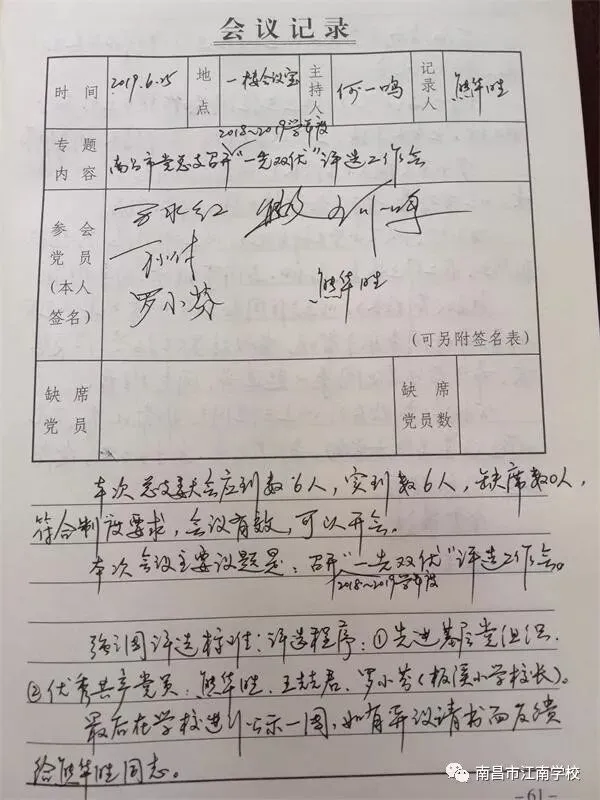 会议记录
时间 2019.6.25 地点 一楼会议室 主持人 何一鸣 记录人 熊华胜
2018~2019学年度
专题内容 南昌市党总支召开“一先双优”评选工作会
参会
党员
(本人
签名)
罗小芬 熊华胜
(可另附签名表)
缺席党员 缺席党员数
本次总支委大会应到数6人,实到数6人,缺席数0人,
符合制度要求,会议有效,可以开会。
本次会议主要议题是:召开“一先双优”评选工作会。
2018~2019学年度
强调评选标准;评选程序:①先进基层党组织.
②优秀共产党员:熊华胜、王志君、罗小芬(板溪小学校长)。
最后在学校进行公示一周,如有异议请书面反馈
给熊华胜同志。
南昌市江南学校
-61-